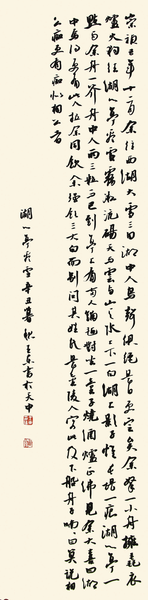 崇禎五年十二月余住西湖大雪三日湖中人鳥聲俱絕是日更定矣余拏小舟擁毳衣
爐火獨往湖心亭看雪霧凇沆碭天與雲與山與水上下一白湖上影子惟長堤一痕湖心亭一
點與余舟一芥舟中人兩三粒而已到亭上有兩人鋪氈對坐一童子燒酒爐正沸見余大喜曰湖
中焉得更有此人拉余同飲余強飲三大白而別問其姓氏是金陵人客此及下船舟子喃喃曰莫說相
公痴更有痴似相公者
湖心亭看雪辛丑暮秋王書於天中